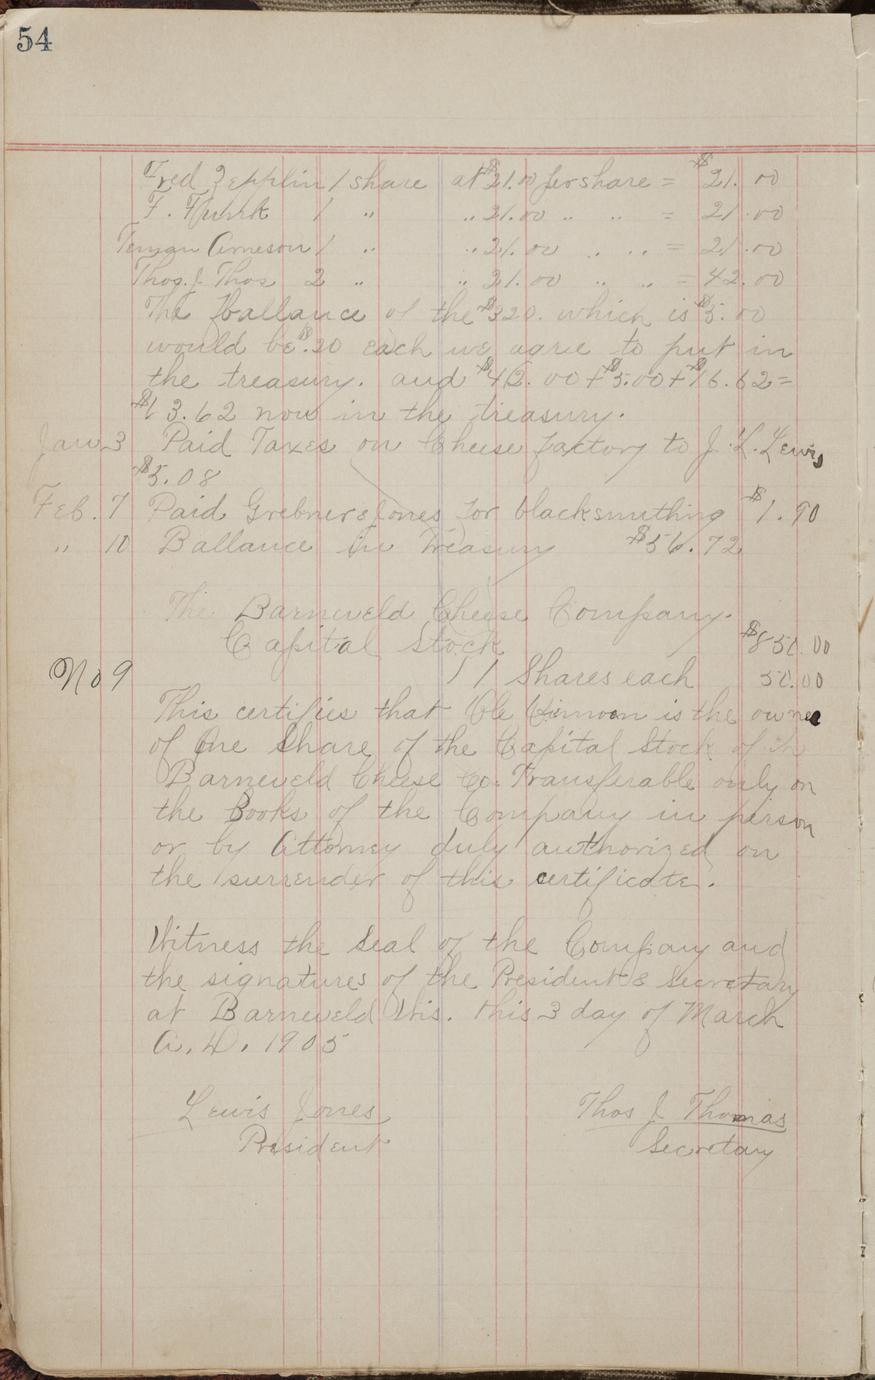 54
Fred Zepplin 1 share at $21.00 per share = $21.00
F. 1 " " 21.00 " " = 21.00
Arneson 1 " " 21.00 " " = 21.00
Thos. J. Thos 2 " " 21.00 " " = 42.00
The ballance of the $320. which is $5.00
would be $.20 each we agree to put in
the treasury. and $42.00 + $5.00 + $16.62 =
$63.62 now in the treasury.
Jan 3 Paid Taxes on Cheese factory to J. L. Lewis
$5.08
Feb. 7 Paid Grebner & Jones for blacksmithing $1.90
" 10 Ballance in Treasury $56.72
The Barneveld Cheese Company.
Capital Stock $850.00
No 9 Shares each 50.00
This certifies that Ole is the owner
of One Share of the Capital Stock of th
Barneveld Cheese Co. Transferable only on
the Books of the Company in person
or by Attorney duly authorized on
the surrender of this certificate.
Witness the Seal of the Company and
the signatures of the President & Secretary
at Barneveld Wis. this 3 day of March
A. D. 1905
Lewis Jones Thos J Thomas
President Secretary